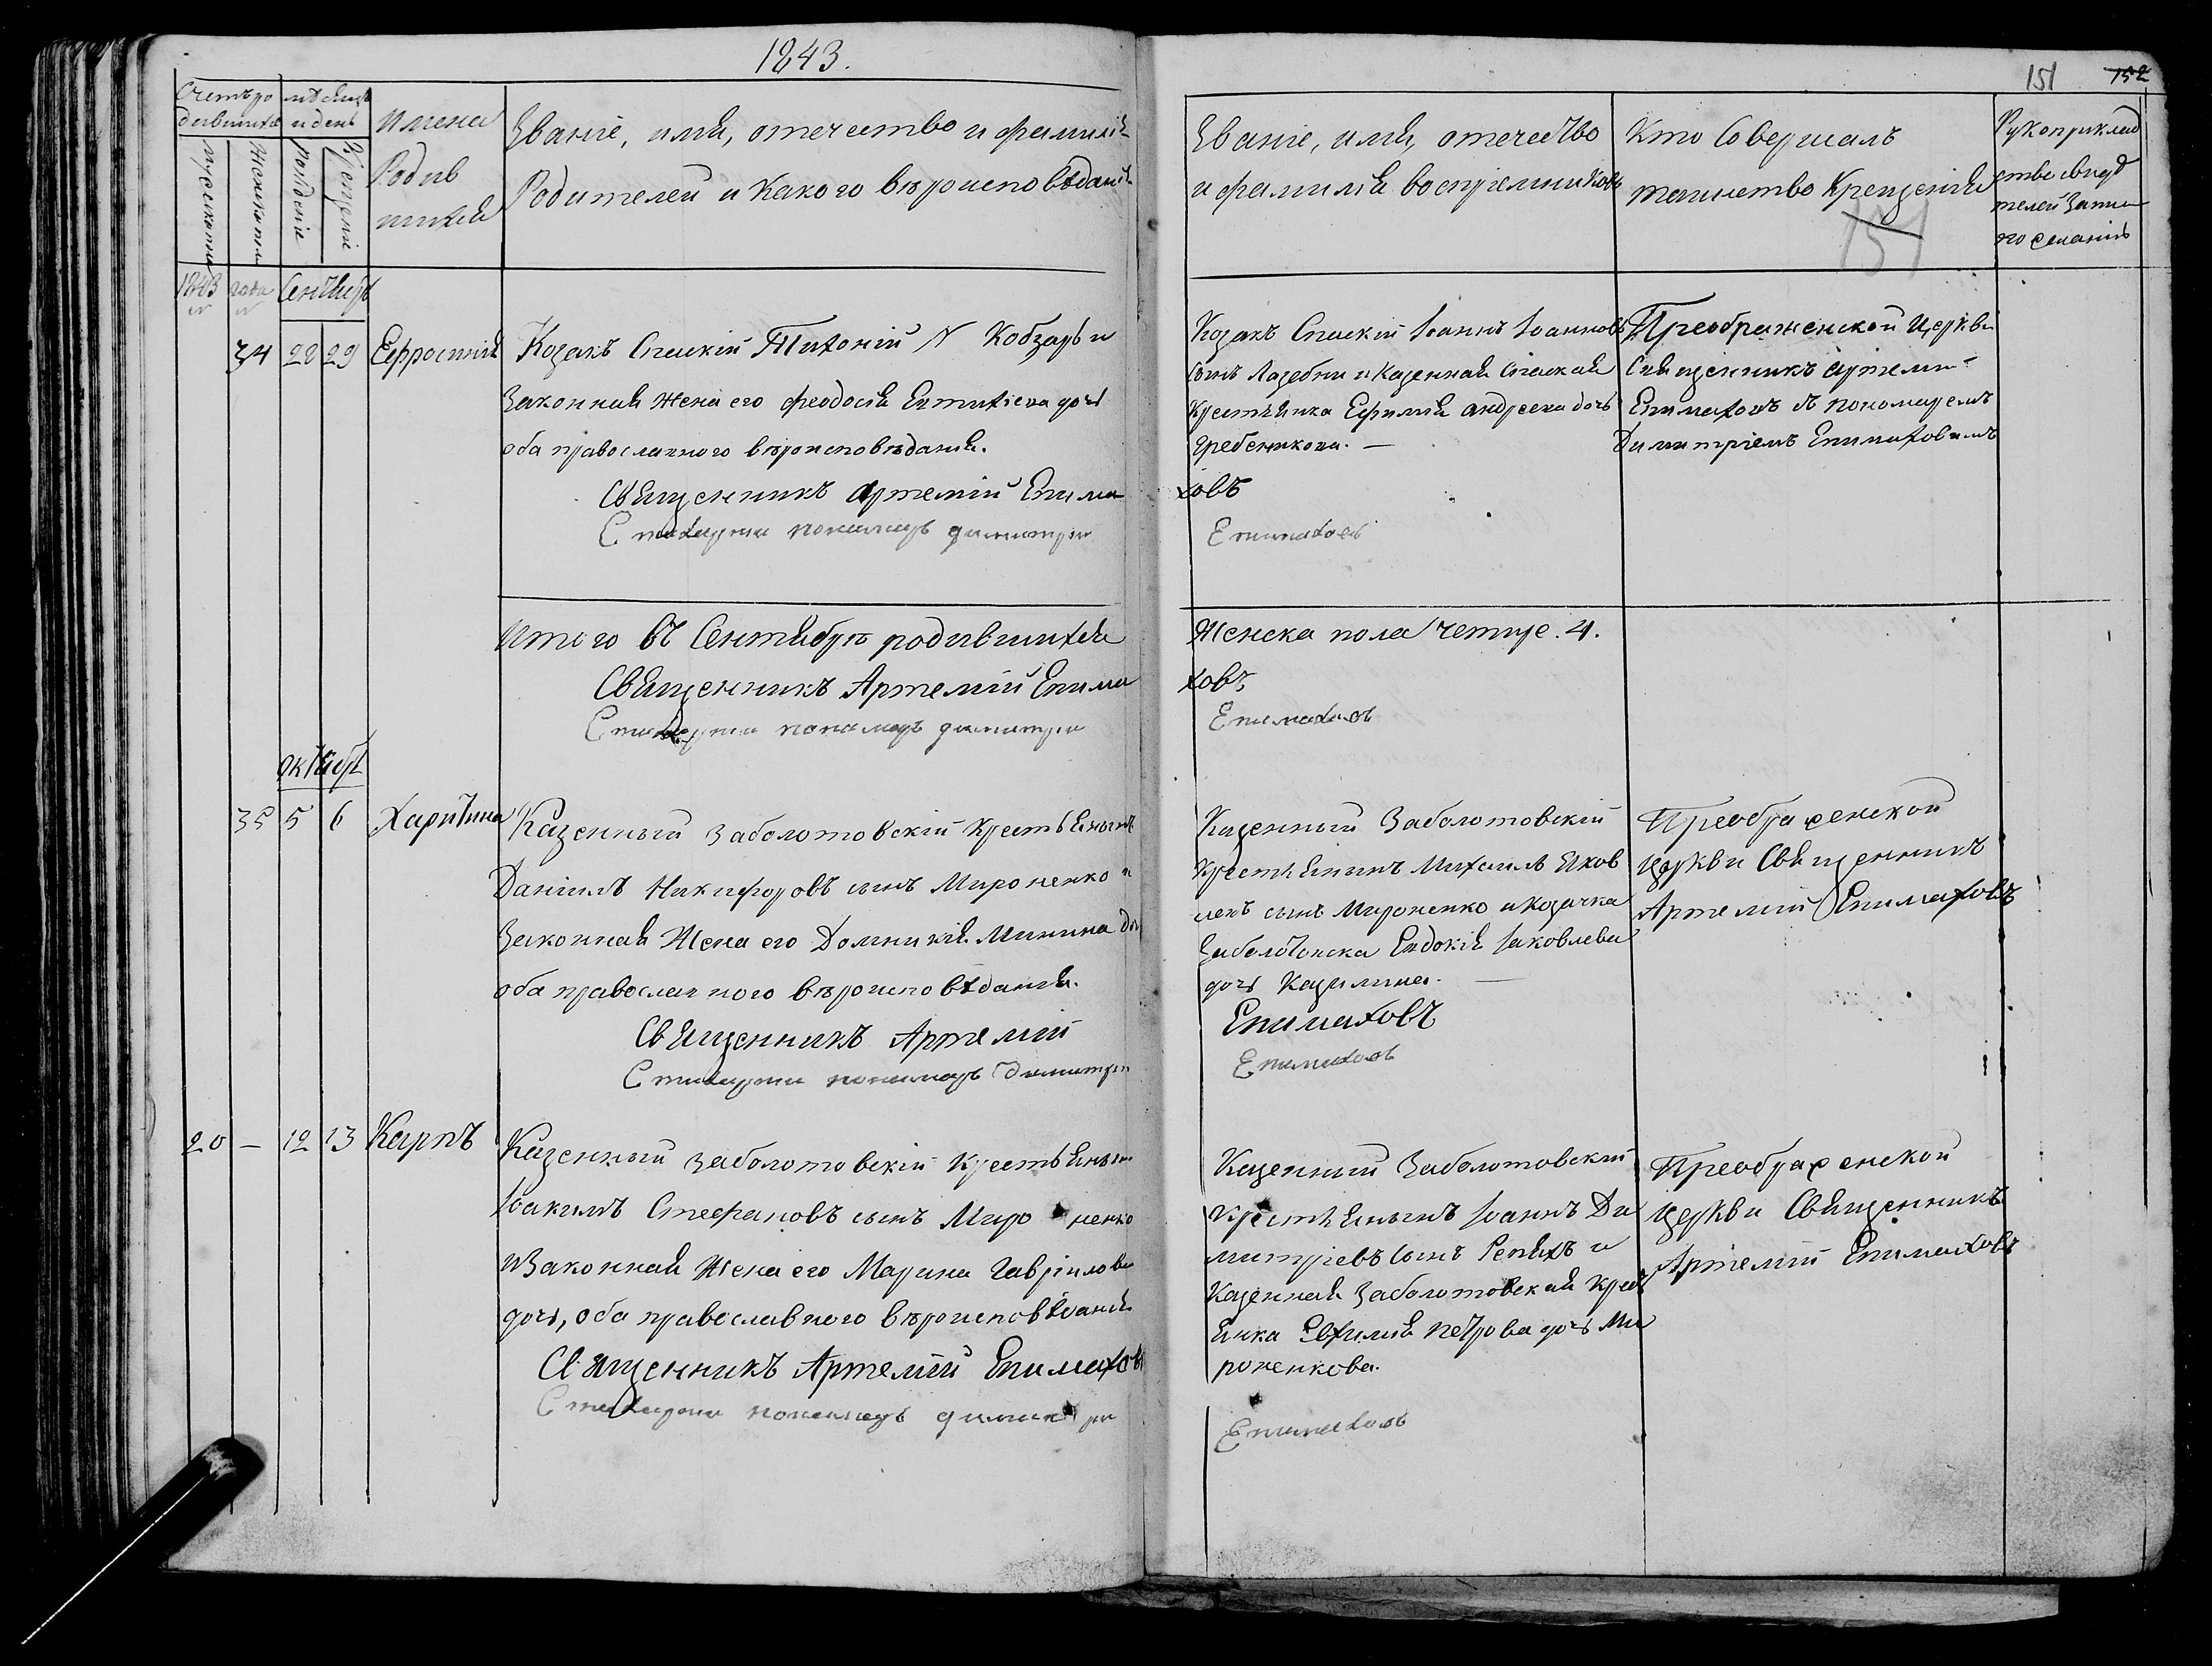 1843.
151 152
Счетъ ро
дившихся
мѣсяцъ
и день
Имена
Родив
шихся
Званіе, имя, отечество и фамилія
Родителей и Какого вѣроисповѣданія
мужеска пола
Женска пола
рожденіе
Крещеніе
Званіе, имя, отечество
и фамилія воспріемниковъ
Кто Совершалъ
таинство Крещенія
151
Рукоприклад
ство свидѣ
телей Запи
по желанію
1843 года Сентябрь
34 22 29 Ефросинія
Козакъ Спаскій Тихоній N Кобзарь и
Законная Жена его феодосія Евтихіева дочь
оба православного вѣроисповѣданія.
Священникъ Артемій Епима
Стихарни пономарь димитри
Козакъ Спаскій Іоаннъ Іоанновъ
Сынъ Лазебни и Казенная Спаская
Крестьянка Ефимія андреева дочь
Гребеникова. —
ховъ
Епимаховъ
Преображенской Церкви
Священникъ Артемій
Епимаховъ съ пономаремъ
Димитріемъ Епимаховимъ
Итого въ Сентябрѣ родившихся
Священникъ Артемій Епима
Стихарни пономарь димитри
Женска пола четире. 4.
ховъ
Епимаховъ
октябрь
35 5 6 Харитина
Казенный Заболотовскій Крестьянынъ
Даніилъ Никифоровъ сынъ Мироненко и
Законная Жена его Домникія Минина доч
оба православного вѣроисповѣданія.
Священникъ Артемій
Стихарни пономарь Димитри
Казенный Заболотовскій
Крестьянинъ Михаилъ Яков
левъ сынъ Мироненко и Козачка
Заболотовска Евдокія Іаковлева
дочь Казилина. —
Епимаховъ
Епимаховъ
Преображенской
церкви Священникъ
Артемій Епимаховъ
20 — 12 13 Карпъ
Казенный Заболотовскій Крестьянын
Іоакимъ Стефановъ сынъ Миро ненко
и Законная Жена его Марина Гавріилова
дочь, оба православного вѣроисповѣданія
Священникъ Артемій Епимаховъ
Стихарни пономарь димитри
Казенный Заболотовскій
Крестьянынъ Іоаннъ Ди
митріевъ сынъ Репяхъ и
Казенная Заболотовская Крест
янка Евфимія Петрова дочь Ми
роненкова.
Епимаховъ
Преображенской
церкви Священникъ
Артемій Епимаховъ